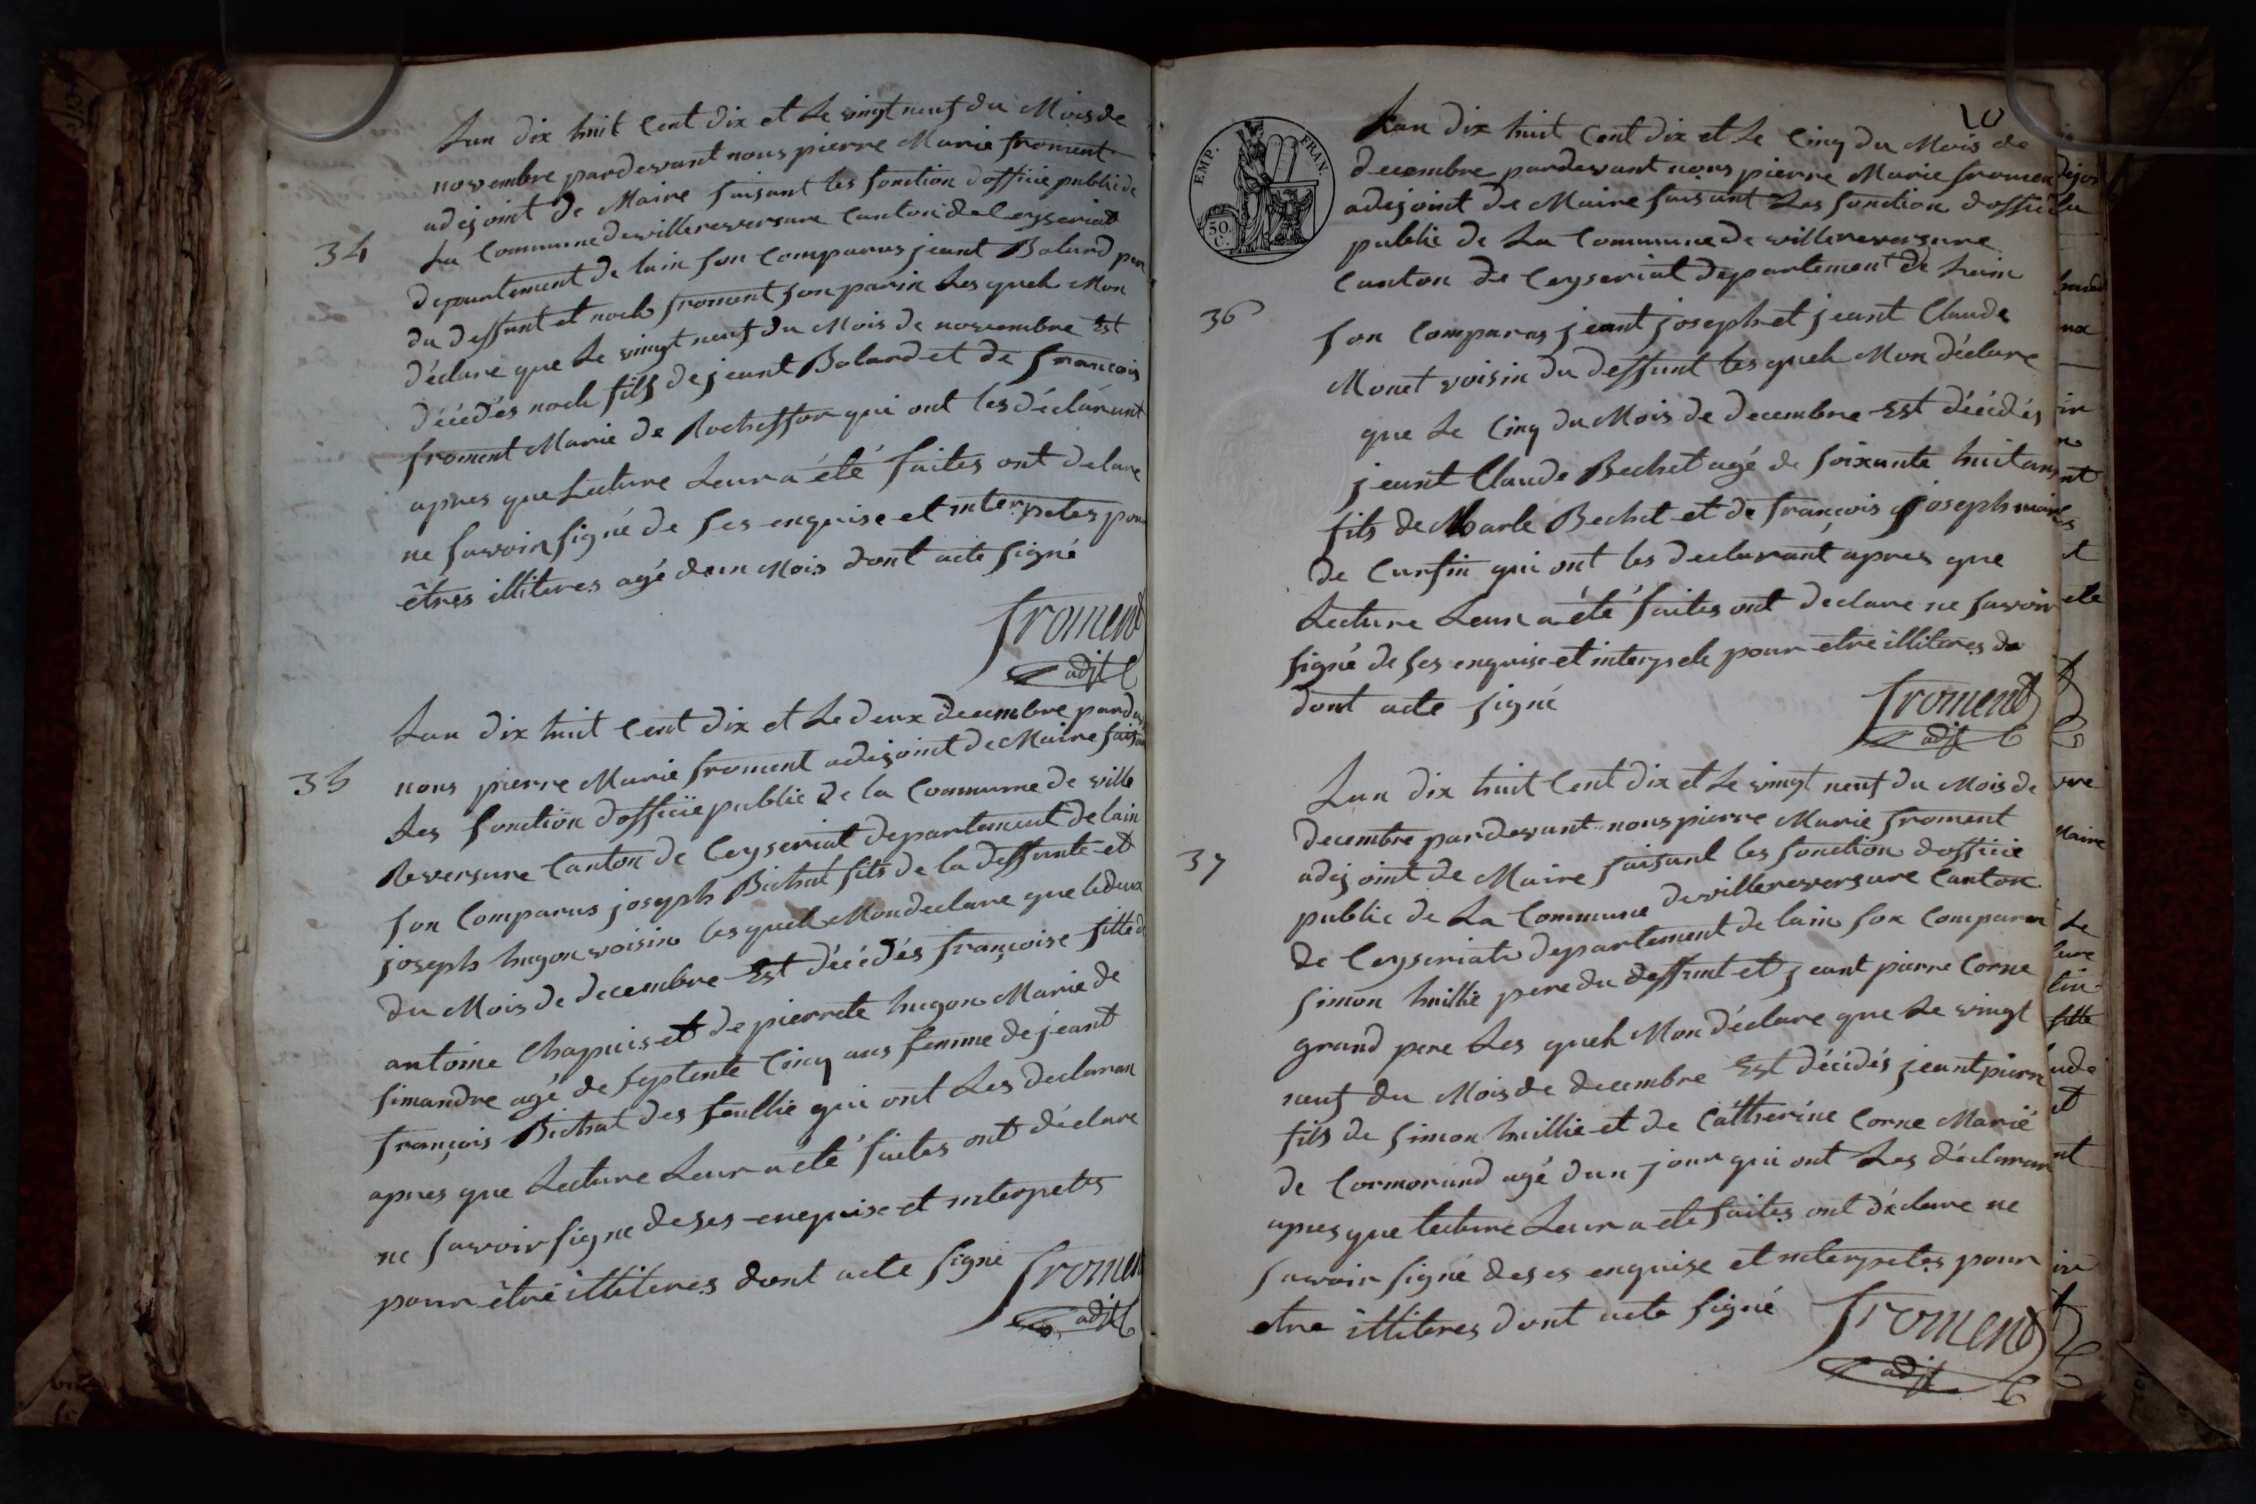 34
Lan dix huit Cent dix et Le vingt neuf du Mois de
novembre pardevant nous pierre Marie froment
adejoint de Maire faisant les fonction dofficie public de
La Commune de villereversure Canton de Ceyseriat
departement de lain son Comparus jeant Bolard pere
du deffunt et noel froment son parin Les quel Mon
déclare que Le vingt neuf du Mois de novembre Est
décédés noel fils de jeant Bolard et de francois
froment Marie de Rocheffor qui ont les déclarant
apres que Lecture Leur a été faites ont delare
ne savoir signé de ses enquise et interpetes pour
êtres illiteres agé dun Mois dont acte signé
froment
adjt
35
Lan dix huit Cent dix et Le deux decembre pardev
nous pierre Marie froment adejoint de Maire faisan
Les fonction dofficie public de la Commune de ville
Reversure Canton de Ceyseriat departement de lain
son Comparus joseph Bichat fils de la deffunte et
joseph hugon voisin les quel Mon declare que le deux
du Mois de decembre Est décédés françoise fille d
antoine Chapuis et de pierrete hugon Marie de
simandre agé de septente Cinq ans femme de jeant
françois Bichat des feullie qui ont Les declaran
apres que Lecture Leur a été faites ont déclare
ne savoir signe de ses enquise et interpetes
pour être illiteres dont acte signé
fromen
adjt
10
EMP. FRAN.
50. C.
36
Lan dix huit Cent dix et Le Cinq du Mois de
decembre pardevant nous pierre Marie fromen
adejoint de Maire faisant Les fonction dofficie
public de La Commune de villereversure
Canton de Ceyseriat departement de Lain
son Comparus jeant joseph et jeant Claude
Monet voisin du deffunt les quel Mon déclare
que Le Cinq du Mois de decembre Est décédés
jeant Claude Bechet agé de soixante huit ans
fils de Marle Bechet et de françois joseph marie
de Curfin qui ont les declarant apres que
Lecture Leur a été faites ont declare ne savoir
signé de ses enquise et interpele pour etre illiteres de
dont acte signé
froment
adjt
37
Lan dix huit Cent dix et Le vingt neuf du Mois de
decembre pardevant nous pierre Marie froment
adejoint de Maire faisant les fonction dofficie
public de La Commune de villereversure Canton
de Ceyseriat departement de lain son Comparu
simon huillie pere du deffunt et jeant pierre Corne
grand pere Les quel Mon déclare que Le vingt
neuf du Mois de decembre Est décédés jeant pierre
fils de simon huillie et de Catherine Corne Marié
de Cormorand agé dun jour qui ont Les déclaran
apres que lecture Leur a ete faites ont déclare ne
savoir signé de ses enquise et interpetes pour
etre illiteres dont acte signé
froment
adjt